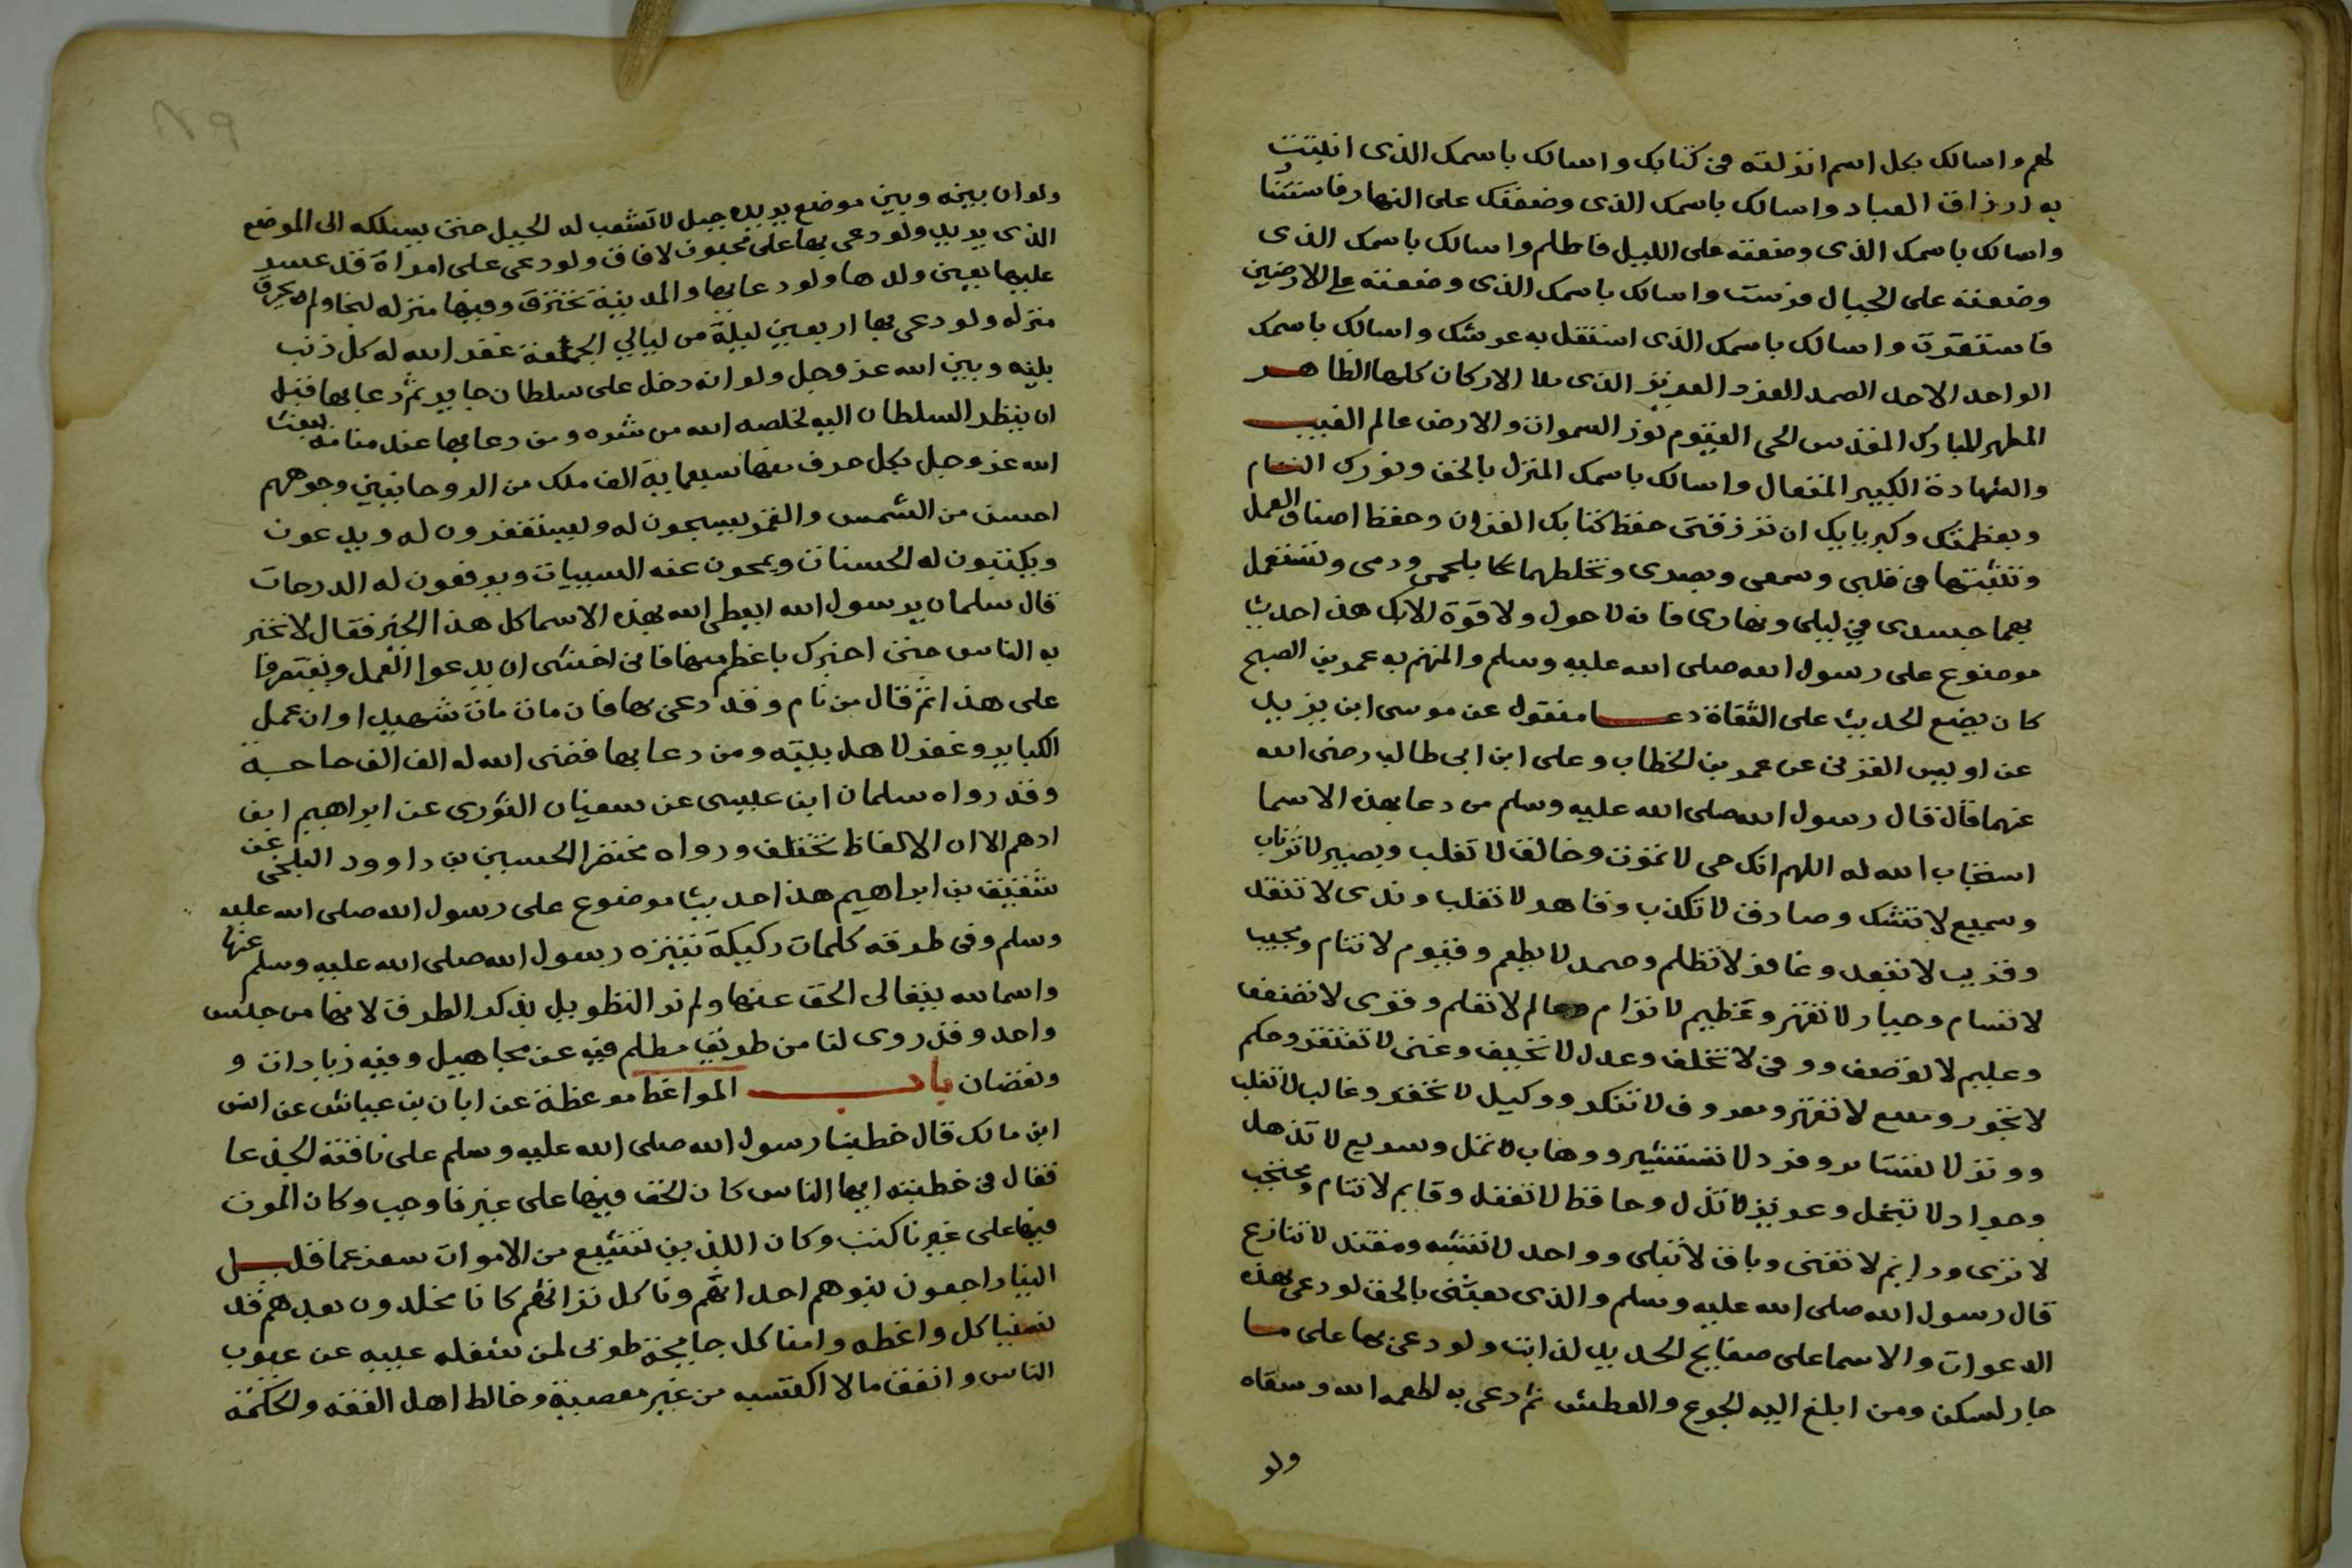 لهم واسالك بكل اسم انزلته فى كتابك واسالك باسمك الذى اثبتت
به ارزاق العباد واسالك باسمك الذى وضعتك على النهار فاستنا
واسالك باسمك الذى وضعته على الليل فاظلم واسالك باسمك الذى
وضعته على الجبال فرست واسالك باسمك الذى وضعته على الارضين
فاستقرت واسالك باسمك الذى استقل به عرشك واسالك باسمك
الواحد الاحد الصمد الفرد العزيز الذى ملا الاركان كلها الطاهر
المطهر المبارك المقدس الحى القيوم نور السموات والارض عالم الغيب
والشهادة الكبير المتعال واسالك باسمك المنزل بالحق ونورك التام
وبعظمتك وكبريايك ان ترزقنى حفظ كتابك القران وحفظ اصناف العمل
وتثبتها فى قلبى وسمعى وبصرى وتخلطهما بلحمى ودمى وتستعمل
بهما جسدى فى ليلى ونهارى فانه لا حول ولا قوة الا بك هذا حديث
موضوع على رسول الله صلى الله عليه وسلم والمتهم به عمر بن الصبح
كان يضع الحديث على الثقاة دعا منقول عن موسى ابن يزيد
عن اويس القرنى عن عمر بن الخطاب وعلى ابن ابى طالب رضى الله
عنهما قال قال رسول الله صلى الله عليه وسلم من دعا بهذه الاسما
استجاب الله له اللهم انك حى لا تموت وخالق لا تغلب وبصير لا ترتاب
وسميع لا تشك وصادق لا تكذب وقاهر لا تغلب وندى لا تنفد
وقريب لا تبعد وغافر لا تظلم وصمد لا يطعم وقيوم لا تنام ومجيب
لا تسام وجبار لا تقهر وعظيم لا ترام وعالم لا تعلم وقوى لا تضعف
وعليم لا توصف ووفى لا تخلف وعدل لا تخيف وغنى لا تفتقر وحكم
لا تجور ومنيع لا تقهر ومعروف لا تنكر ووكيل لا تحقر وغالب لا تغلب
ووتر لا تستامر وفرد لا تستشير ووهاب لا تمل وسريع لا تذهل
وجواد لا تبخل وعزيز لا تذل وحافظ لا تغفل وقايم لا تنام ومحتجب
لا ترى ودايم لا تفنى وباق لا تبلى وواحد لا تشبه ومقتدر لا تنازع
قال رسول الله صلى الله عليه وسلم والذى بعثنى بالحق لو دعى بهذه
الدعوات والاسما على صفايح الحديد لذابت ولو دعى بها على ما
جار لسكن ومن ابلغ اليه الجوع والعطش ثم دعى به اطعمه الله وسقاه
ولو
ولو ان بينه وبين موضع يريده جبل لا تشعب له الجبل حتى يسلكه الى الموضع
الذى يريد ولو دعى بها على مجنون لافاق ولو دعى على امراة قد عسر
عليها بعين ولدها ولو دعا بها والمدينة تحترق وفيها منزله لنجا ولم يحرق
منزله ولو دعى بها اربعين ليلة من ليالي الجمعة غفر الله له كل ذنب
بينه وبين الله عز وجل ولو انه دخل على سلطان جاير ثم دعا بها قبل
ان ينظر السلطان اليه لخلصه الله من شره ومن دعا بها عند منامه بعث
الله عز وجل بكل حرف منها سبعماية الف ملك من الروحانيين وجوههم
احسن من الشمس والقمر يسبحون له ويستغفرون له ويدعون
ويكتبون له الحسنات ويمحون عنه السييات ويرفعون له الدرجات
قال سلمان يرسول الله ايعطى الله بهذه الاسما كل هذا الخير فقال لا تخبر
به الناس حتى اخبرك باعظم منها فانى اخشى ان يدعوا العمل ويقتصرفا
على هذا ثم قال من نام وقد دعى بها فان مات مات شهيدا وان عمل
الكباير وغفر لاهل بيته ومن دعا بها قضى الله له الف الف حاجة
وقد رواه سلمان ابن عيسى عن سفيان الثورى عن ابراهيم ابن
ادهم الا ان الالفاظ تختلف ورواه مختصرا الحسين بن داوود البلخى عن
شقيق بن ابراهيم هذا حديث موضوع على رسول الله صلى الله عليه
وسلم وفى طرقه كلمات ركيكة تنزه رسول الله صلى الله عليه وسلم عنها
واسما لله يتعالى الحق عنها ولم نر التطويل بذكر الطرق لانها من جنس
واحد وقد روى لنا من طريق مظلم فيه عن مجاهيل وفيه زيادات و
ونقصان باب المواعظ موعظة عن ابان بن عياش عن انس
ابن مالك قال خطبنا رسول الله صلى الله عليه وسلم على ناقته الجذعا
فقال فى خطبته ايها الناس كان الحق فيها على غيرنا وجب وكان الموت
فيها على غيرنا كتب وكان الذين نشيع من الاموات سفر عما قليل
الينا راجعون نبوهم احداثهم وناكل تراثهم كانا مخلدون بعدهم قد
نسينا كل واعظه وامنا كل جايحة طوبى لمن شغله عيبه عن عيوب
الناس وانفق مالا اكتسبه من غير معصية وخالط اهل الفقه والحكمة